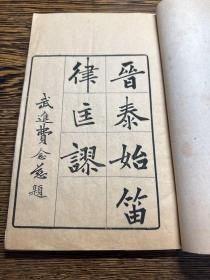 晉泰始笛
律匡謬
武進費念慈題